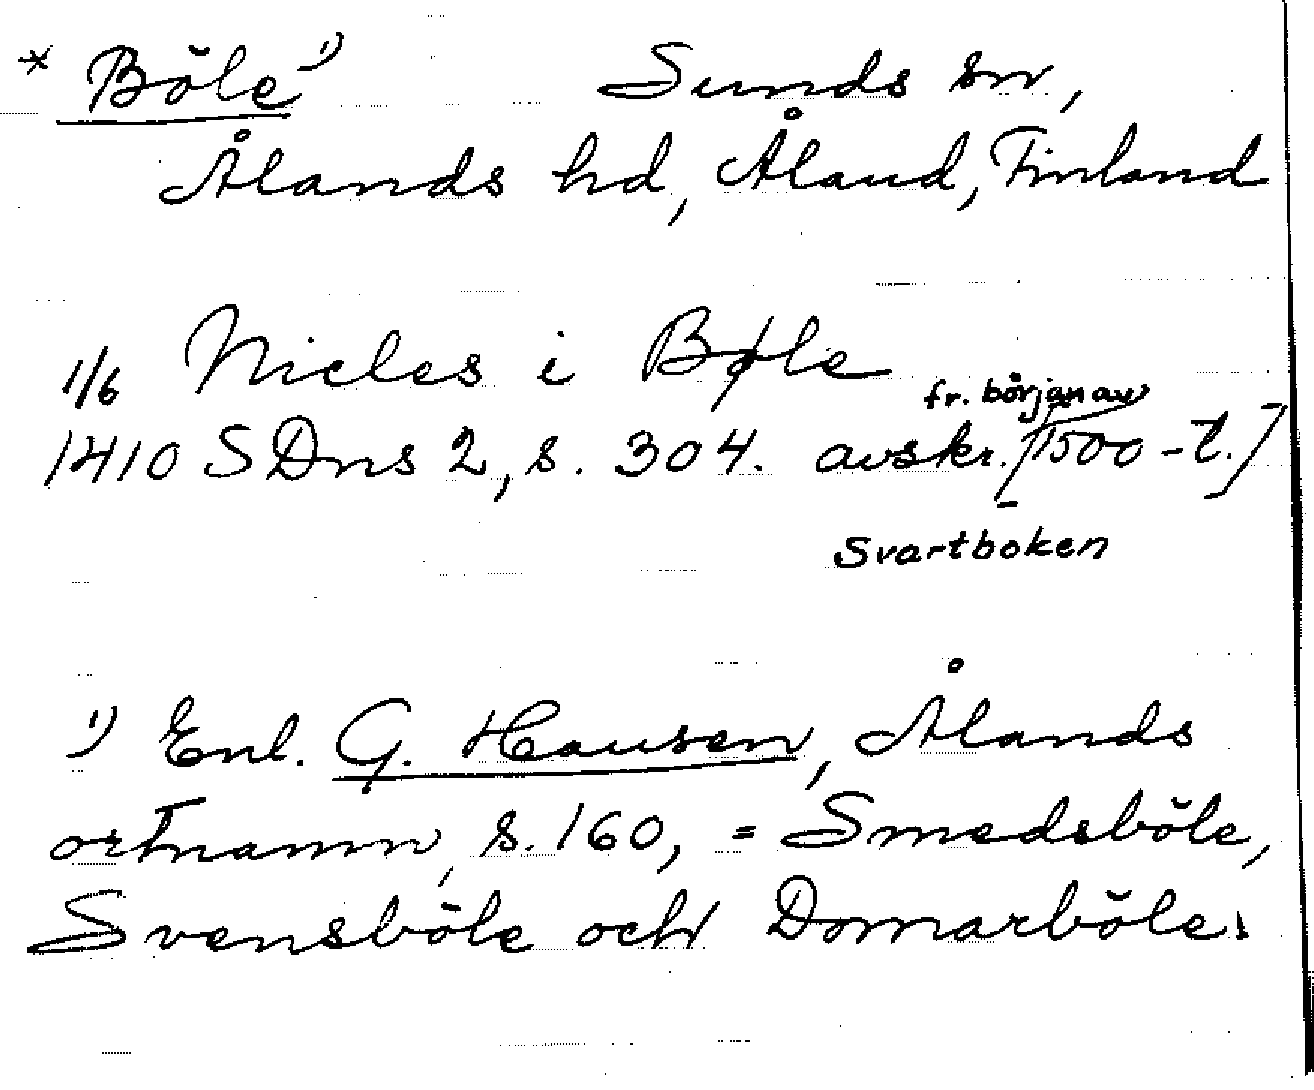 * Böle 1) Sunds sn,
Ålands hd, Åland, Finland
1/6 Nicles i Bøle
fr. början av
1410 SDns 2, s. 304. avskr. [1500-t.]
Svartboken
1) Enl. G. Hausen, Ålands
ortnamn, s. 160, = Smedsböle,
Svensböle och Domarböle.